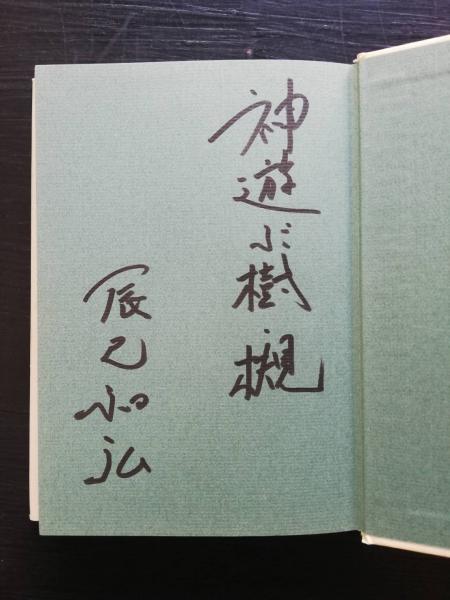 神遊ぶ樹 槻
辰巳和弘